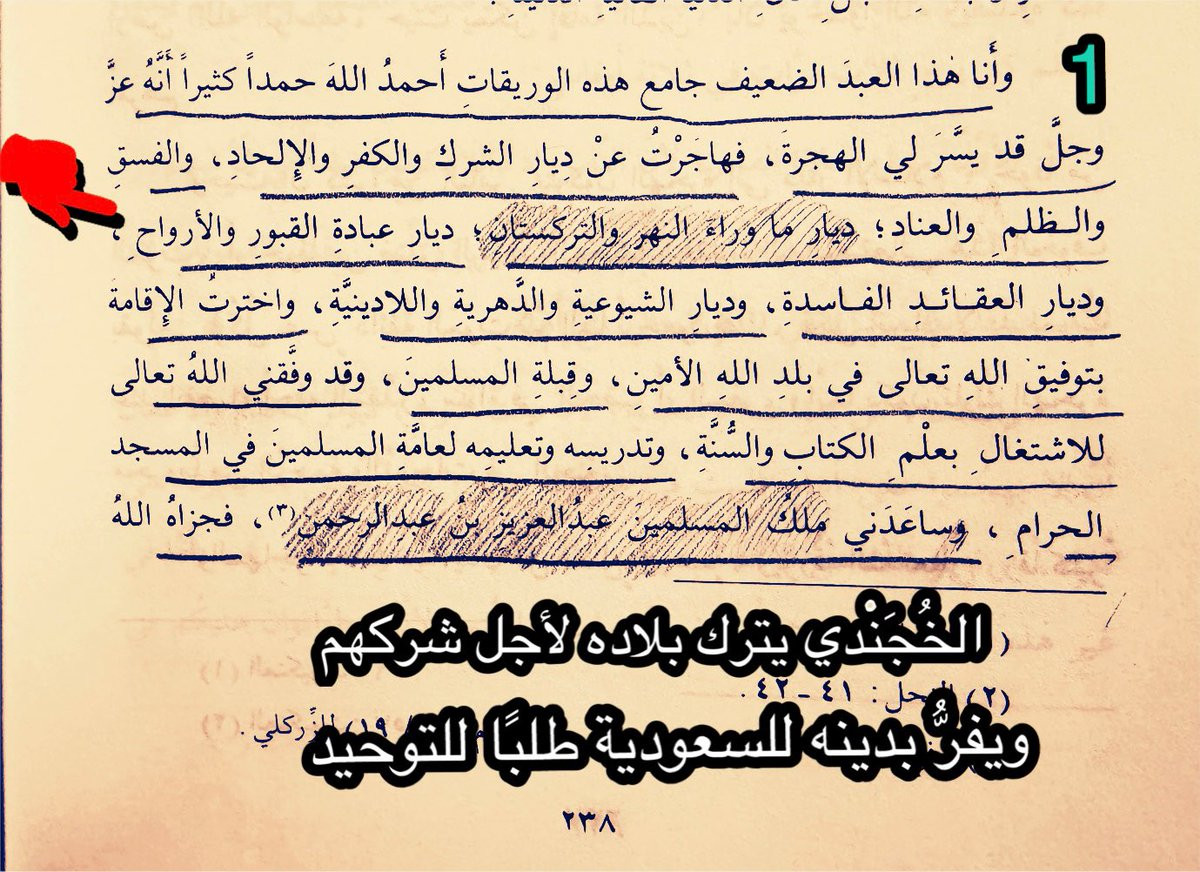 1
وأَنا هٰذا العبدَ الضعيف جامع هذه الوريقاتِ أَحمدُ اللهَ حمداً كثيراً أَنَّهُ عزَّ
وجلَّ قد يسَّرَ لي الهجرةَ، فهاجَرْتُ عنْ دِيارِ الشركِ والكفرِ والإِلحادِ، والفسقِ
والـظلمِ والعنادِ؛ ديارِ ما وراءَ النهر والتركستانِ؛ ديارِ عبادةِ القبورِ والأرواحِ،
وديارِ العقـائـدِ الفـاسدةِ، وديارِ الشيوعيةِ والدَّهريةِ واللادينيَّةِ، واخترتُ الإِقامةَ
بتوفيقِ اللهِ تعالى في بلدِ اللهِ الأمينِ، وقِبلةِ المسلمينَ، وقد وفَّقني اللهُ تعالى
للاشتغالِ بعلْمِ الكتابِ والسُّنَّةِ، وتدريسِه وتعليمِه لعامَّةِ المسلمينَ في المسجد
الحرامِ، وساعَدَني ملكُ المسلمينَ عبدُالعزيز بنُ عبدِالرحمنِ(٣)، فجزاهُ اللهُ
الخُجَنْدي يترك بلاده لأجل شركهم
(٢) النحل: ٤١ - ٤٢.
ويفرُّ بدينه للسعودية طلبًا للتوحيد
١٩) للزِّركلي.
٢٣٨